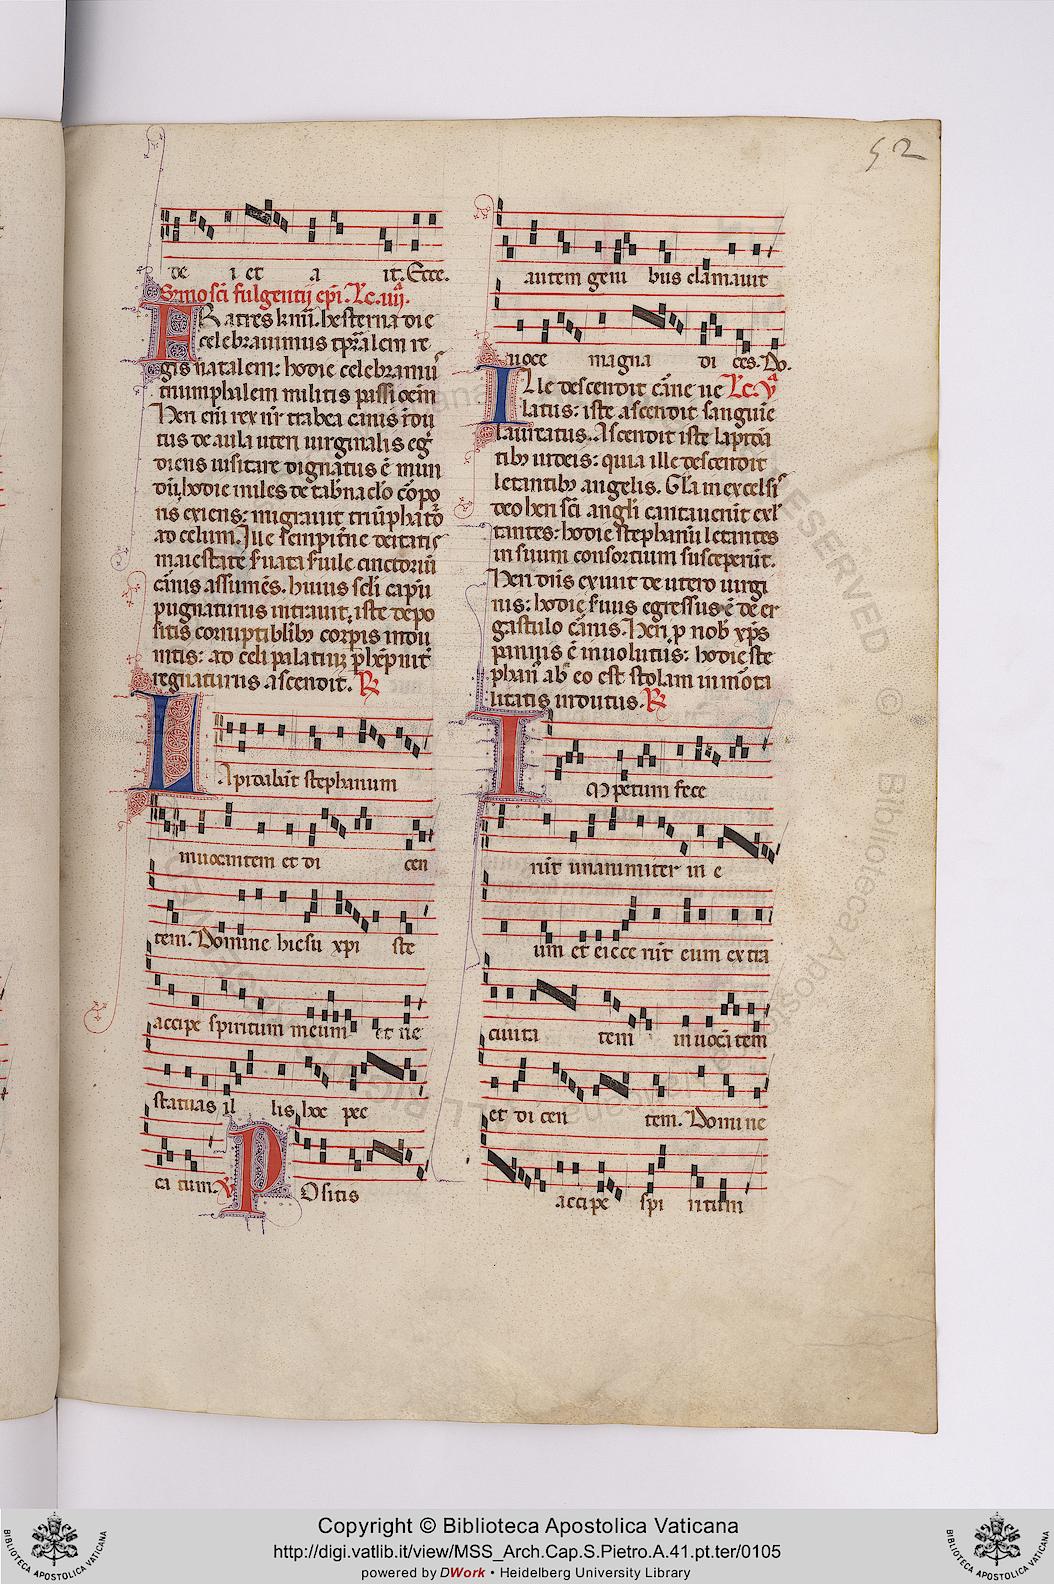 52
de i et a it. Ecce.
Sermo sci fulgentii epi. Lc. iiij.
FRatres kmi. hesterna die
celebravimus tpralem re
gis natalem: hodie celebramus
triumphalem militis passioem
Heri eni rex nr trabea carnis indu
tus de aula uteri virginalis egr
diens visitare dignatus e mun
du, hodie miles de tabernaclo corpo
ris exiens: migravit triuphator
ad celum. Ille sempiterne deitatis
maiestate servata servile cinctorium
carnis assumens. huius scli capu
pugnaturus intravit, iste depo
sitis corruptiblibus corporis indu
mtis: ad celi palatium phepnit
regnaturus ascendit. R
LApidabat stephanum
invocantem et di cen
tem. Domine hiesu xpi ste
accipe spiritum meum et ne
statuas il lis hoc pec
ca tum. V POsitis
autem geni bus clamavit
voce magna di ces. Do.
ILle descendit carne ve Lc. v
latus: iste ascendit sanguine
lauratus. Ascendit iste lapida
tibus iudeis: quia ille descendit
letantibus angelis. Gla in excelsis
deo heri sci angli cantaverunt exl
tantes: hodie stephanu letantes
in suum consortium susceperunt.
Heri dns exivit de utero virgi
nis: hodie servus egressus e de er
gastulo carnis. Heri p nob xps
pannis e involutus: hodie ste
phanus ab eo est stolam inmorta
litatis indutus. R
IMpetum fece
runt unanimiter in e
um et eiece runt eum extra
civita tem invocantem
et di cen tem. Domine
accipe spi ritum
Copyright © Biblioteca Apostolica Vaticana
http://digi.vatlib.it/view/MSS_Arch.Cap.S.Pietro.A.41.pt.ter/0105
powered by DWork • Heidelberg University Library